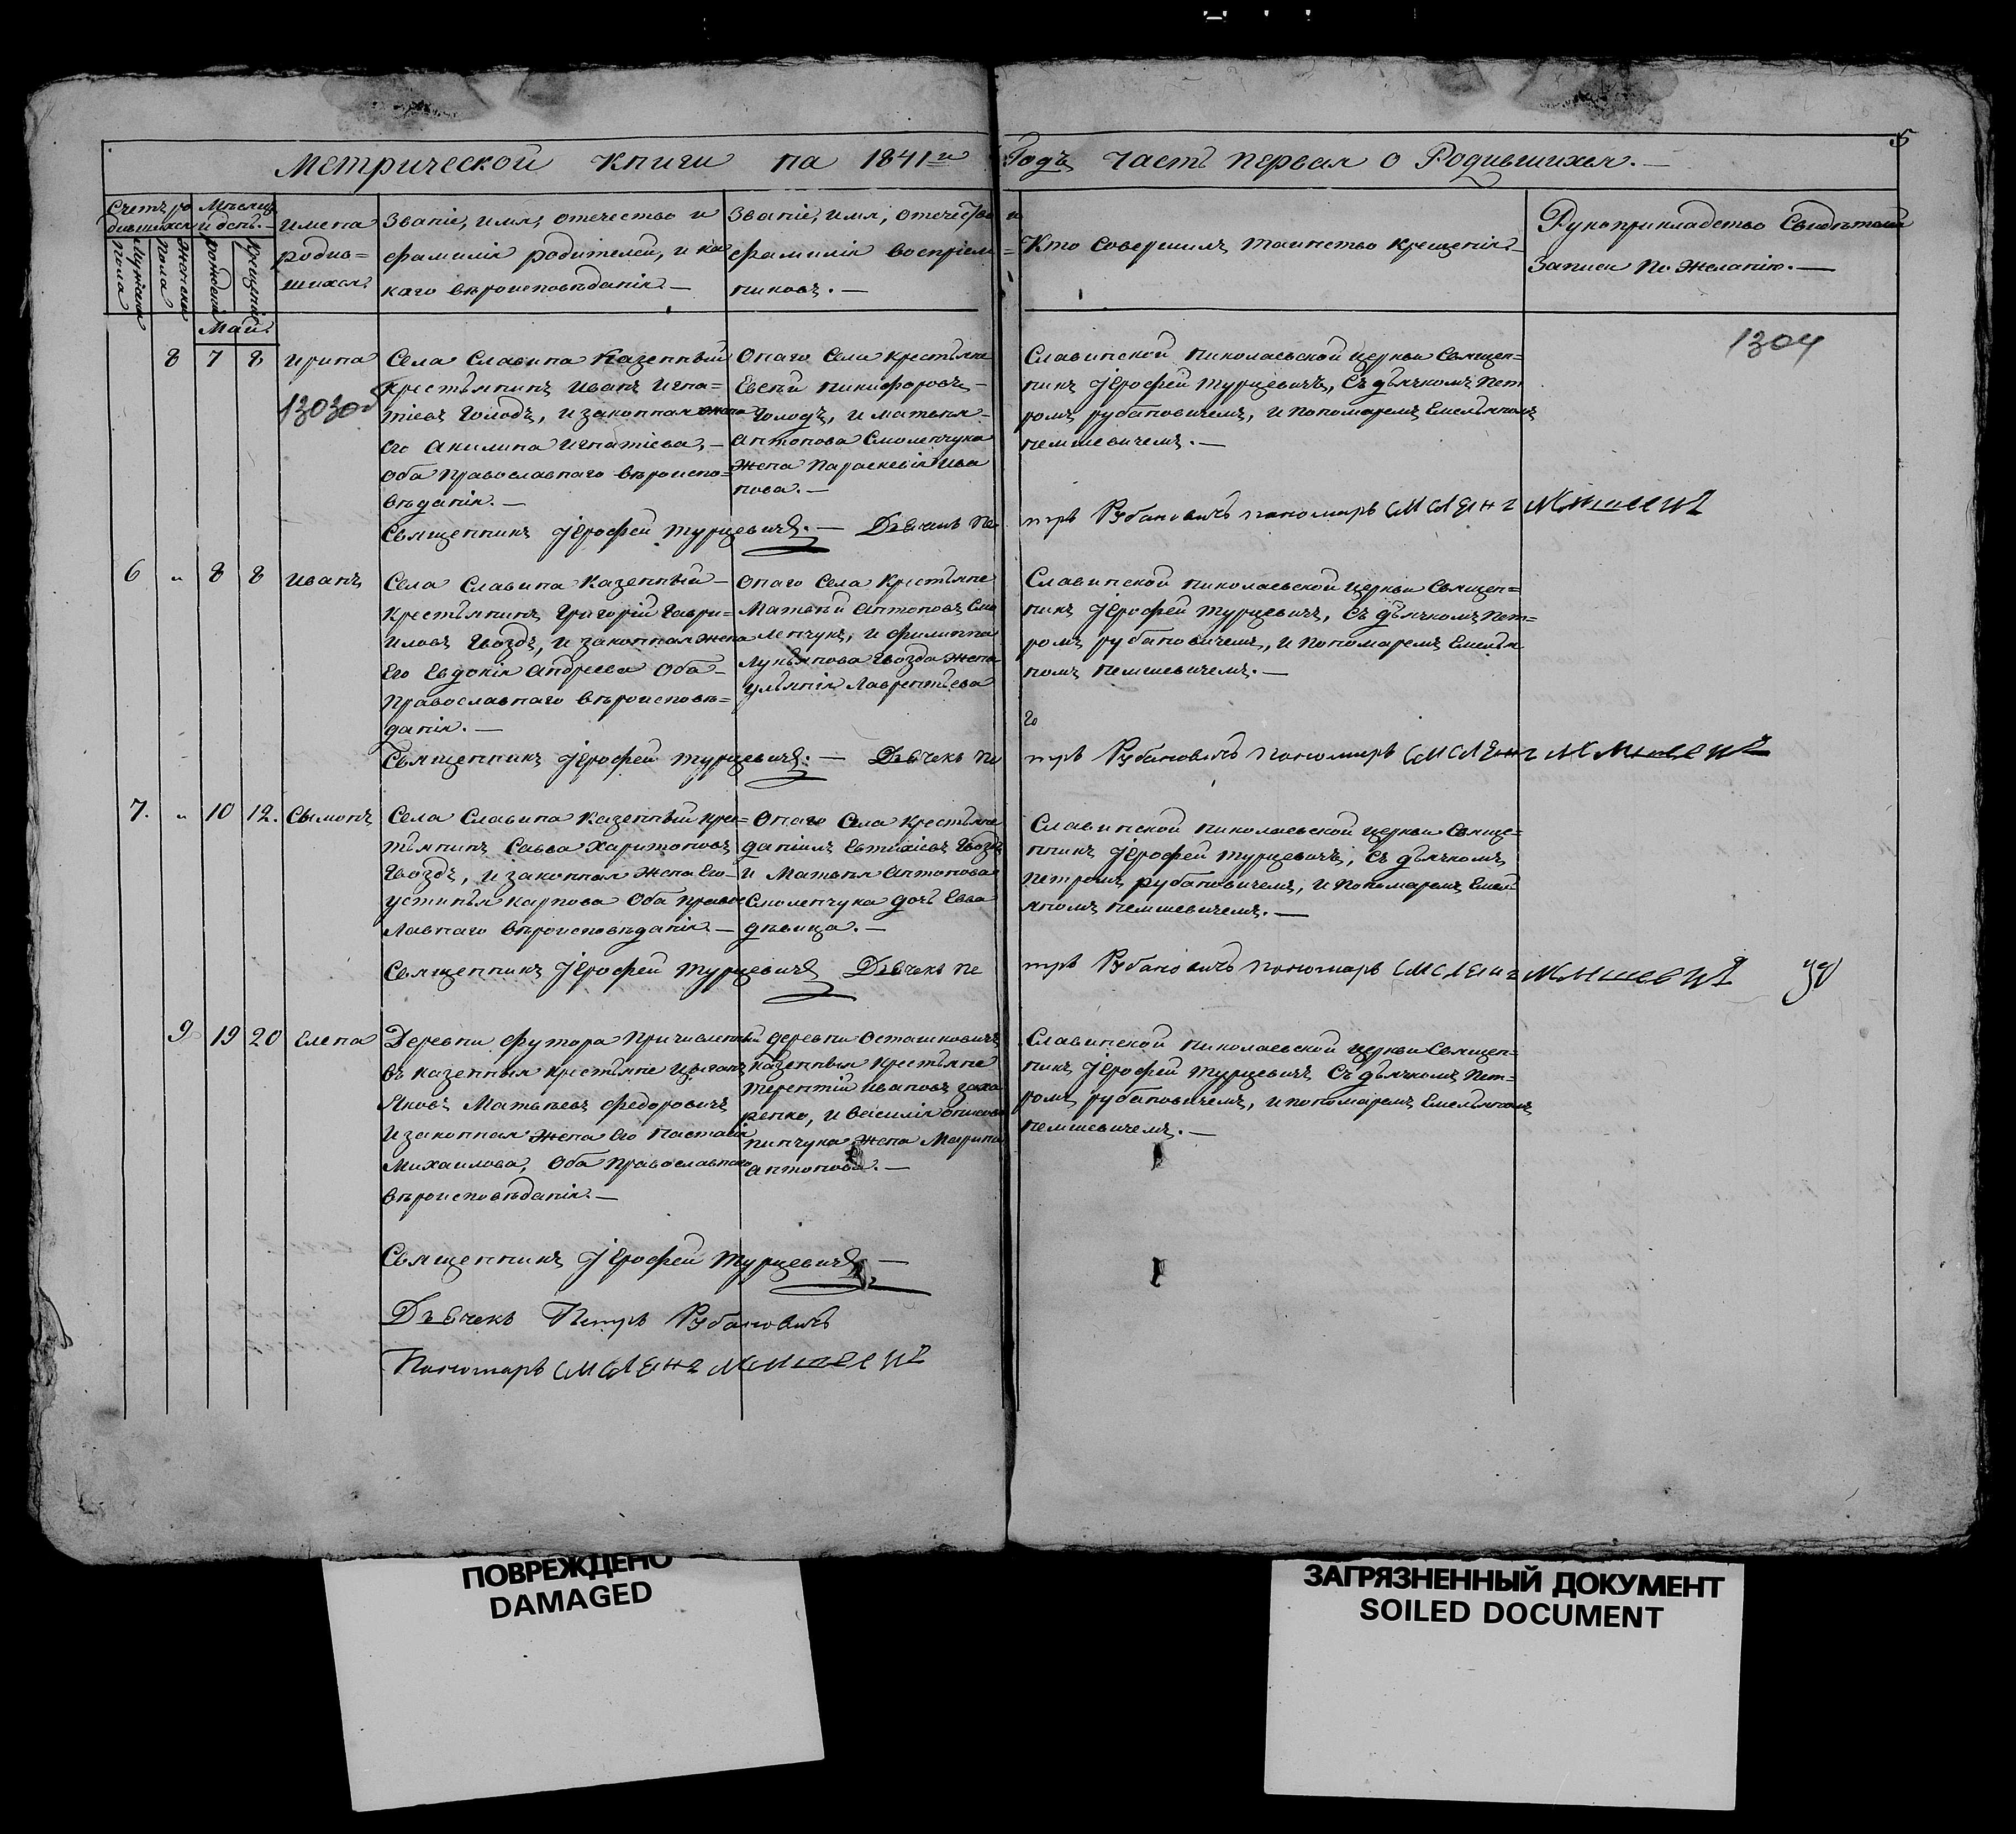 5
Метрической книги на 1841-й Годъ часть первая о Родившихся. —
Счетъ ро
дившихся
Мужеска
Пола
Женска
Пола
Месяцъ
и день. —
рожденія
крещенія
Имена
родив=
шихся
Званіе, имя, отечество и
фамилія родителей, и ка
каго вѣроисповѣданія —
Званіе, имя, отечество и
фамилія воспріем=
никовъ. —
Кто Совершилъ таинство крещенія
Рукоприкладство Свидѣтелей
Записи По Желанію. —
Май
8 7 8 Ирина
1303об
Села Славина Казенный
Крестьянинъ Иванъ Игна=
тіевъ Голодъ, и законная жена
его Акилина Игнатіева, —
оба Православнаго вѣроиспо=
вѣданія. —
Онаго Села крестьяне
Евсѣй Никифоровъ —
Голодъ, и Матвѣя —
Антонова Смоленчука
Жена Параскевія Ива
нова. —
Славинской Николаевской Церкви Священ=
никъ Іерофей Турцевичъ, Съ дьячкомъ Пет
ромъ Рубановичемъ, и Пономаремъ Емельяномъ
Немшевичемъ. —
1304
Священникъ Іерофей Турцевичъ. — Дьячекъ Пе
тръ Рубановичъ пономарь
6 „ 8 8 Иванъ
Села Славина Казенный —
Крестьянинъ Григорій Гаври=
иловъ Гвоздь, и законная жена
Его Евдокія Андреева Оба —
Православнаго вѣроисповѣ=
данія. —
Онаго Села Крестьяне
Матвѣй Антоновъ Смо
ленчукъ, и Филиппа
Лукьянова Гвозда Жена
Ульянія Лаврентьева
Славинской Николаевской Церкви Священ=
никъ Іерофей Турцевичъ, Съ дьячкомъ Пет=
ромъ Рубановичемъ, и Пономаремъ Емелья
номъ Немшевичемъ. —
Священникъ Іерофей Турцевичъ. — Дьячекъ Пе
тръ Рубановичъ пономарь
7. „ 10 12. Сымонъ
Села Славина Казенный крес=
тьянинъ Савва Харитоновъ
Гвоздь, и законная жена Его
Устинья Карпова Оба правос
Лавнаго вѣроисповѣданія —
Онаго Села Крестьяне
Даніилъ Евтихіевъ Гвоздь
и Матвѣя Антонова
Смоленчука дочь Евва
дѣвица. —
Славинской Николаевской Церкви Свяще=
нникъ Іерофей Турцевичъ, Съ дьячкомъ
Петромъ Рубановичемъ, и Пономаремъ Емель
яномъ Немшевичемъ. —
Священникъ Іерофей Турцевичъ Дьячекъ Пе
тръ Рубановичъ пономарь
9 19 20 Елена
Деревни Футора Причисленный
въ казенныя крестьяне Цыганъ
Яковъ Матвѣевъ Федоровичъ
и законная жена Его Настасія
Михаилова, Оба Православнаго
вѣроисповѣданія —
деревни Осташковичъ
Казенныя Крестьяне
Терентій Ивановъ Заха
ренко, и Василія
Пинчука жена Марина
Антонова. —
Славинской Николаевской Церкви Священ=
никъ Іерофей Турцевичъ Съ дьячкомъ Пет=
ромъ Рубановичемъ, и пономаремъ Емельяномъ
Немшевичемъ. —
Священникъ Іерофей Турцевичъ —
Дьячекъ Петръ Рубановичъ
Пономарь
ПОВРЕЖДЕНО
DAMAGED
ЗАГРЯЗНЕННЫЙ ДОКУМЕНТ
SOILED DOCUMENT